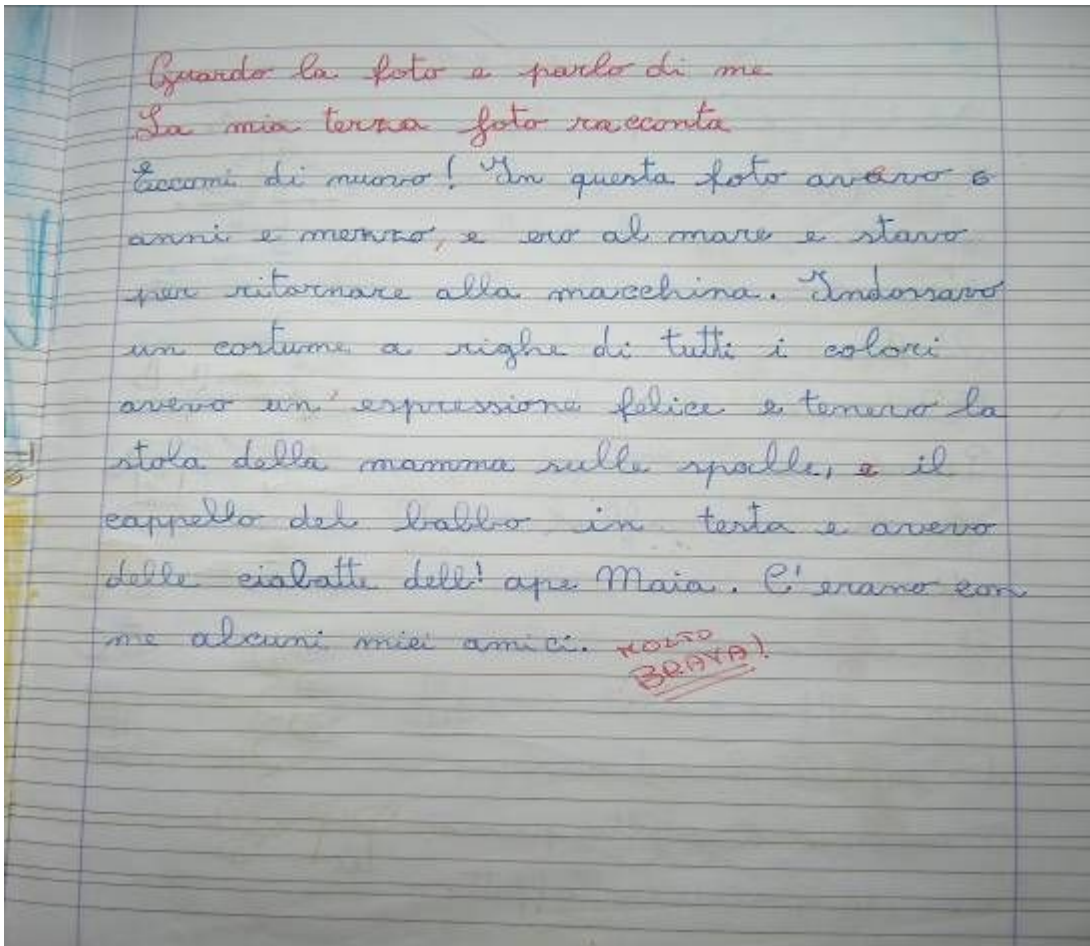 Guardo la foto e parlo di me
La mia terza foto racconta
Eccomi di nuovo! In questa foto avevo 6
anni e mezzo, e ero al mare e stavo
per ritornare alla macchina. Indossavo
un costume a righe di tutti i colori
avevo un'espressione felice e tenevo la
stola della mamma sulle spalle, e il
cappello del babbo in testa e avevo
delle ciabatte dell'ape Maia. C'erano con
me alcuni miei amici. MOLTO
BRAVA!